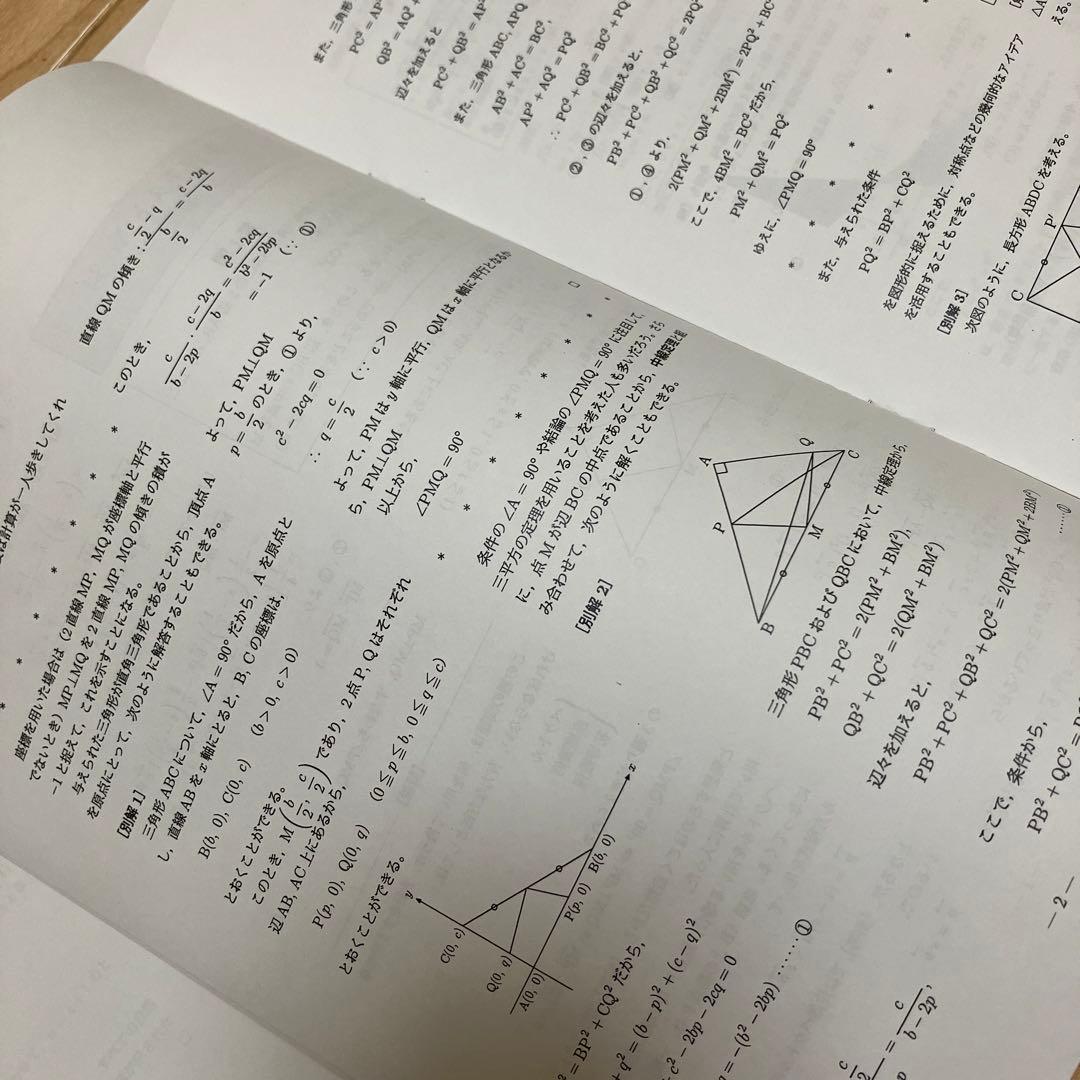 は計算が一人歩きしてくれ
* * * * *
座標を用いた場合は (2 直線 MP, MQ が座標軸と平行
でないとき) MP⊥MQ を 2 直線 MP, MQ の傾きの積が
−1 と捉えて, これを示すことになる。
与えられた三角形が直角三角形であることから, 頂点 A
を原点にとって, 次のように解答することもできる。
[別解 1]
三角形 ABC について, ∠A = 90° だから, A を原点と
し, 直線 AB を x 軸にとると, B, C の座標は,
B(b, 0), C(0, c) (b > 0, c > 0)
とおくことができる。
このとき, M(b/2, c/2) であり, 2 点 P, Q はそれぞれ
辺 AB, AC 上にあるから,
P(p, 0), Q(0, q) (0 ≦ p ≦ b, 0 ≦ q ≦ c)
とおくことができる。
y
C(0, c)
Q(0, q)
A(0, 0)
P(p, 0)
B(b, 0)
x
= BP² + CQ² だから,
q² = (b − p)² + (c − q)²
c² − 2bp − 2cq = 0
= −(b² − 2bp) ……①
= c/(b − 2p),
直線 QM の傾き : (c/2 − q)/(b/2) = (c − 2q)/b
このとき,
c/(b − 2p) · (c − 2q)/b = (c² − 2cq)/(b² − 2bp)
= −1 (∵ ①)
よって, PM⊥QM
p = b/2 のとき, ① より,
c² − 2cq = 0
∴ q = c/2 (∵ c > 0)
よって, PM は y 軸に平行, QM は x 軸に平行となるか
ら, PM⊥QM
以上から,
∠PMQ = 90° □
* * * * *
条件の ∠A = 90° や結論の ∠PMQ = 90° に注目して,
三平方の定理を用いることを考えた人も多いだろう。さら
に, 点 M が辺 BC の中点であることから, 中線定理と組
み合わせて, 次のように解くこともできる。
[別解 2]
A
P
Q
B
M
C
三角形 PBC および QBC において, 中線定理から,
PB² + PC² = 2(PM² + BM²),
QB² + QC² = 2(QM² + BM²)
辺々を加えると,
PB² + PC² + QB² + QC² = 2(PM² + QM² + 2BM²)
……①
ここで, 条件から,
PB² + QC² =
— 2 —
また, 三角形
PC² = AP²
QB² = AQ² +
辺々を加えると
PC² + QB² = AP²
また, 三角形 ABC, APQ
AB² + AC² = BC²,
AP² + AQ² = PQ²
∴ PC² + QB² = BC² + PQ
②, ③ の辺々を加えると,
PB² + PC² + QB² + QC² = 2PQ²
①, ④ より,
2(PM² + QM² + 2BM²) = 2PQ² + BC²
ここで, 4BM² = BC² だから,
PM² + QM² = PQ²
ゆえに, ∠PMQ = 90°
* * * * *
また, 与えられた条件
PQ² = BP² + CQ²
を図形的に捉えるために, 対称点などの幾何的なアイデア
を活用することもできる。
[別解 3]
次図のように, 長方形 ABDC を考える。
C
P′
△A
える。